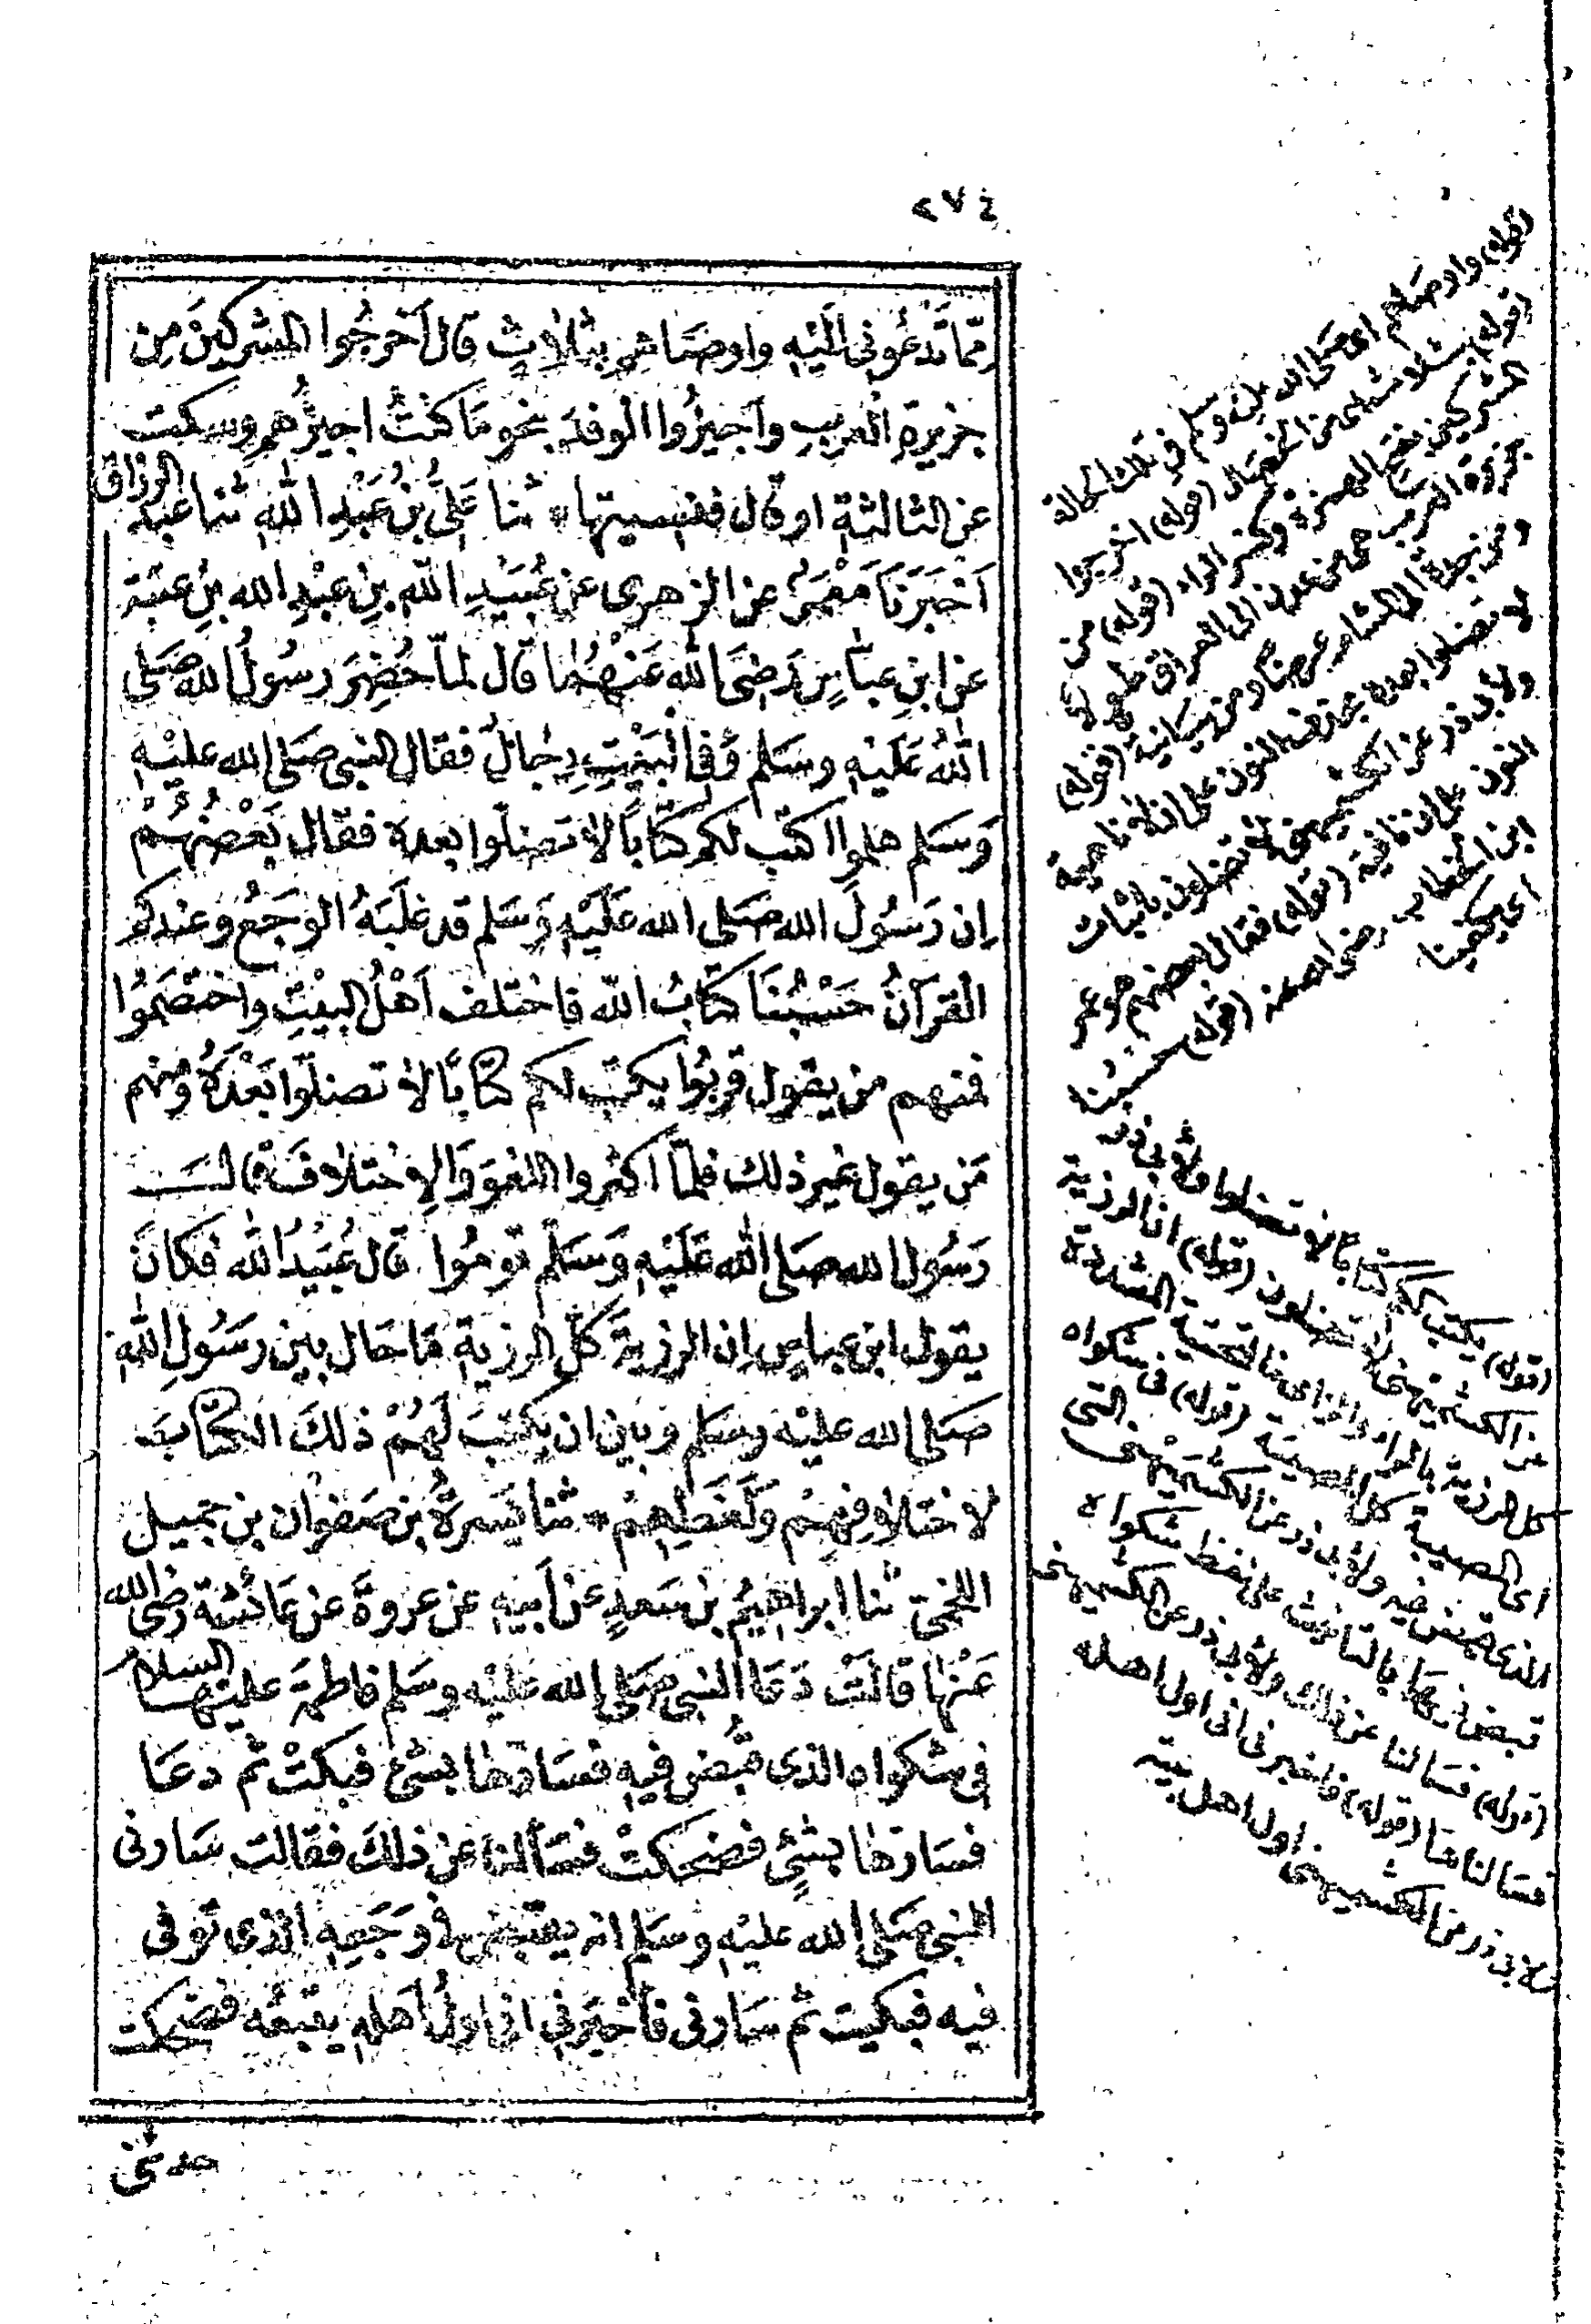 ٢٧٤
مِمَّا تَدْعُونِي اِلَيْهِ واوصَاهُم بِثَلاثٍ قال اَخرِجُوا المشركينَ مِن
جزيرةِ العربِ واَجيزُوا الوفدَ بنحوِ مَا كنتُ اجيزُهم وسكت
عن الثالثةِ او قال فنسيتها * ثنا عَلِيُّ بنُ عَبْدِ اللهِ ثنا عبد الرزاق
اَخْبَرَنَا مَعْمَرٌ عن الزهرى عن عُبَيْدِ اللهِ بنِ عَبْدِ الله بنِ عتبة
عن ابنِ عباسٍ رَضِيَ الله عَنْهُمَا قال لمّا حُضِرَ رسُولُ الله صَلى
اللهُ عَلَيْهِ وسَلم وَفي الْبَيْتِ رِجالٌ فقال النبى صَلى الله عليْهِ
وَسَلم هلموا اكتب لكم كتاباً لا تضلّوا بعده فقال بَعْضُهُمْ
اِن رَسُولَ الله صَلى الله عَلَيْهِ وَسَلم قد غلَبَهُ الوجَعُ وَعندكم
القرآنُ حَسْبُنَا كتابُ الله فاختلف اَهْلُ البيْتِ واختصَمُوا
فمنهم من يقول قربُوا يكتب لكم كتابًا لا تضلّوا بَعْدَهُ ومنهم
مَن يقول غير ذلك فلمّا اكثروا اللغوَ وَالاِختلافَ قالَ
رَسُول الله صَلى الله عَلَيْهِ وَسَلم قومُوا قال عُبَيْدُ الله فكانَ
يقول ابن عباسٍ اِن الرزيةَ كلَّ الرزيةِ مَا حَال بين رسَُولِ اللهِ
صَلى الله عليْه وسَلم وبين ان يكتبَ لَهُمْ ذلكَ الكتابَ
لاختلافِهِم ولَغَطِهِمْ * ثنا يَسَرَةُ بن صَفوَان بن جميل
اللخمىّ ثنا ابراهيمُ بن سَعدٍ عن اَبيهِ عن عروةَ عن عَائشة رضى الله
عَنْها قالَتْ دَعَا النبى صَلى الله عَليْه وسَلم فاطمةَ عليْها السلام
فى شكواه الذى قُبض فيهِ فسَارّها بشئ فبكتْ ثم دعَا
فسَارّها بشئٍ فضحكتْ فسَألنا عن ذلكَ فقالت سَارنى
النبى صَلى الله عليْهِ وسَلم انه يقبض فى وَجَعِهِ الذى توفى
فيه فبكيت ثم سَارنى فأخبَرنى انى اولُ اَهلهِ يتبعُه فضحكت
حدثنى
(قوله) واوصاهم اى صلى الله عليه وسلم فى تلك الحالة
(قوله) بثلاث اى من الخصال (قوله) اخرجوا
المشركين بفتح الهمزة وكسر الراء (قوله) من
جزيرة العرب هى من عدن الى العراق طولا
ومن جدة الى الشام عرضًا
لا تضلوا بعده بحذف النون على ان لا ناهية
ولابى ذر عن الكشميهنى لا تضلون باثبات
النون على انها نافية (قوله) فقال بعضهم هو عمر
ابن الخطاب رضى الله عنه (قوله) حسبُنا
اى يكفينا
(قوله) يكتب لكم كتابا لا تضلوا ولابى ذر
عن الكشميهنى لا تضلون (قوله) ان الرزية
كل الرزية بالراء والزاى فالتحتية المشددة
اى المصيبة كل المصيبة (قوله) فى شكواه
الذى قبض فيه ولابى ذر عن الكشميهنى التى
قبض فيها بالتانيث على لفظ شكواه
(قوله) فسَالنا عن ذلك ولابى ذر عن الكشميهنى
فسَالناها (قوله) فاخبرنى انى اول اهله
لابى ذر عن الكشميهنى اول اهل بيته